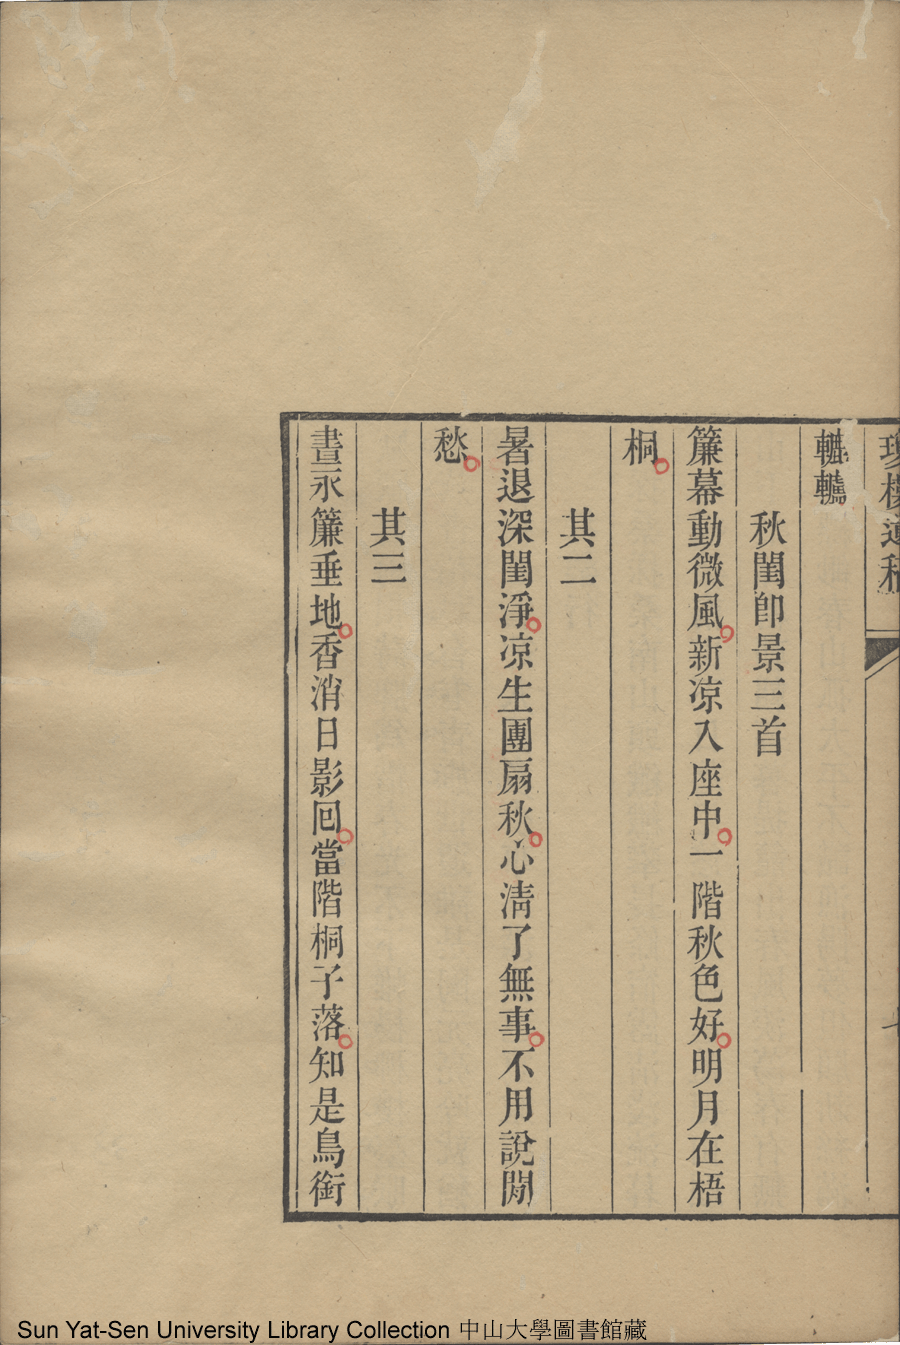 轆轤
秋閨卽景三首
簾幕動微風新涼入座中一階秋色好明月在梧
桐
其二
暑退深閨淨凉生團扇秋心淸了無事不用說閒
愁
其三
晝永簾垂地香消日影囘當階桐子落知是鳥銜
Sun Yat-Sen University Library Collection 中山大學圖書館藏